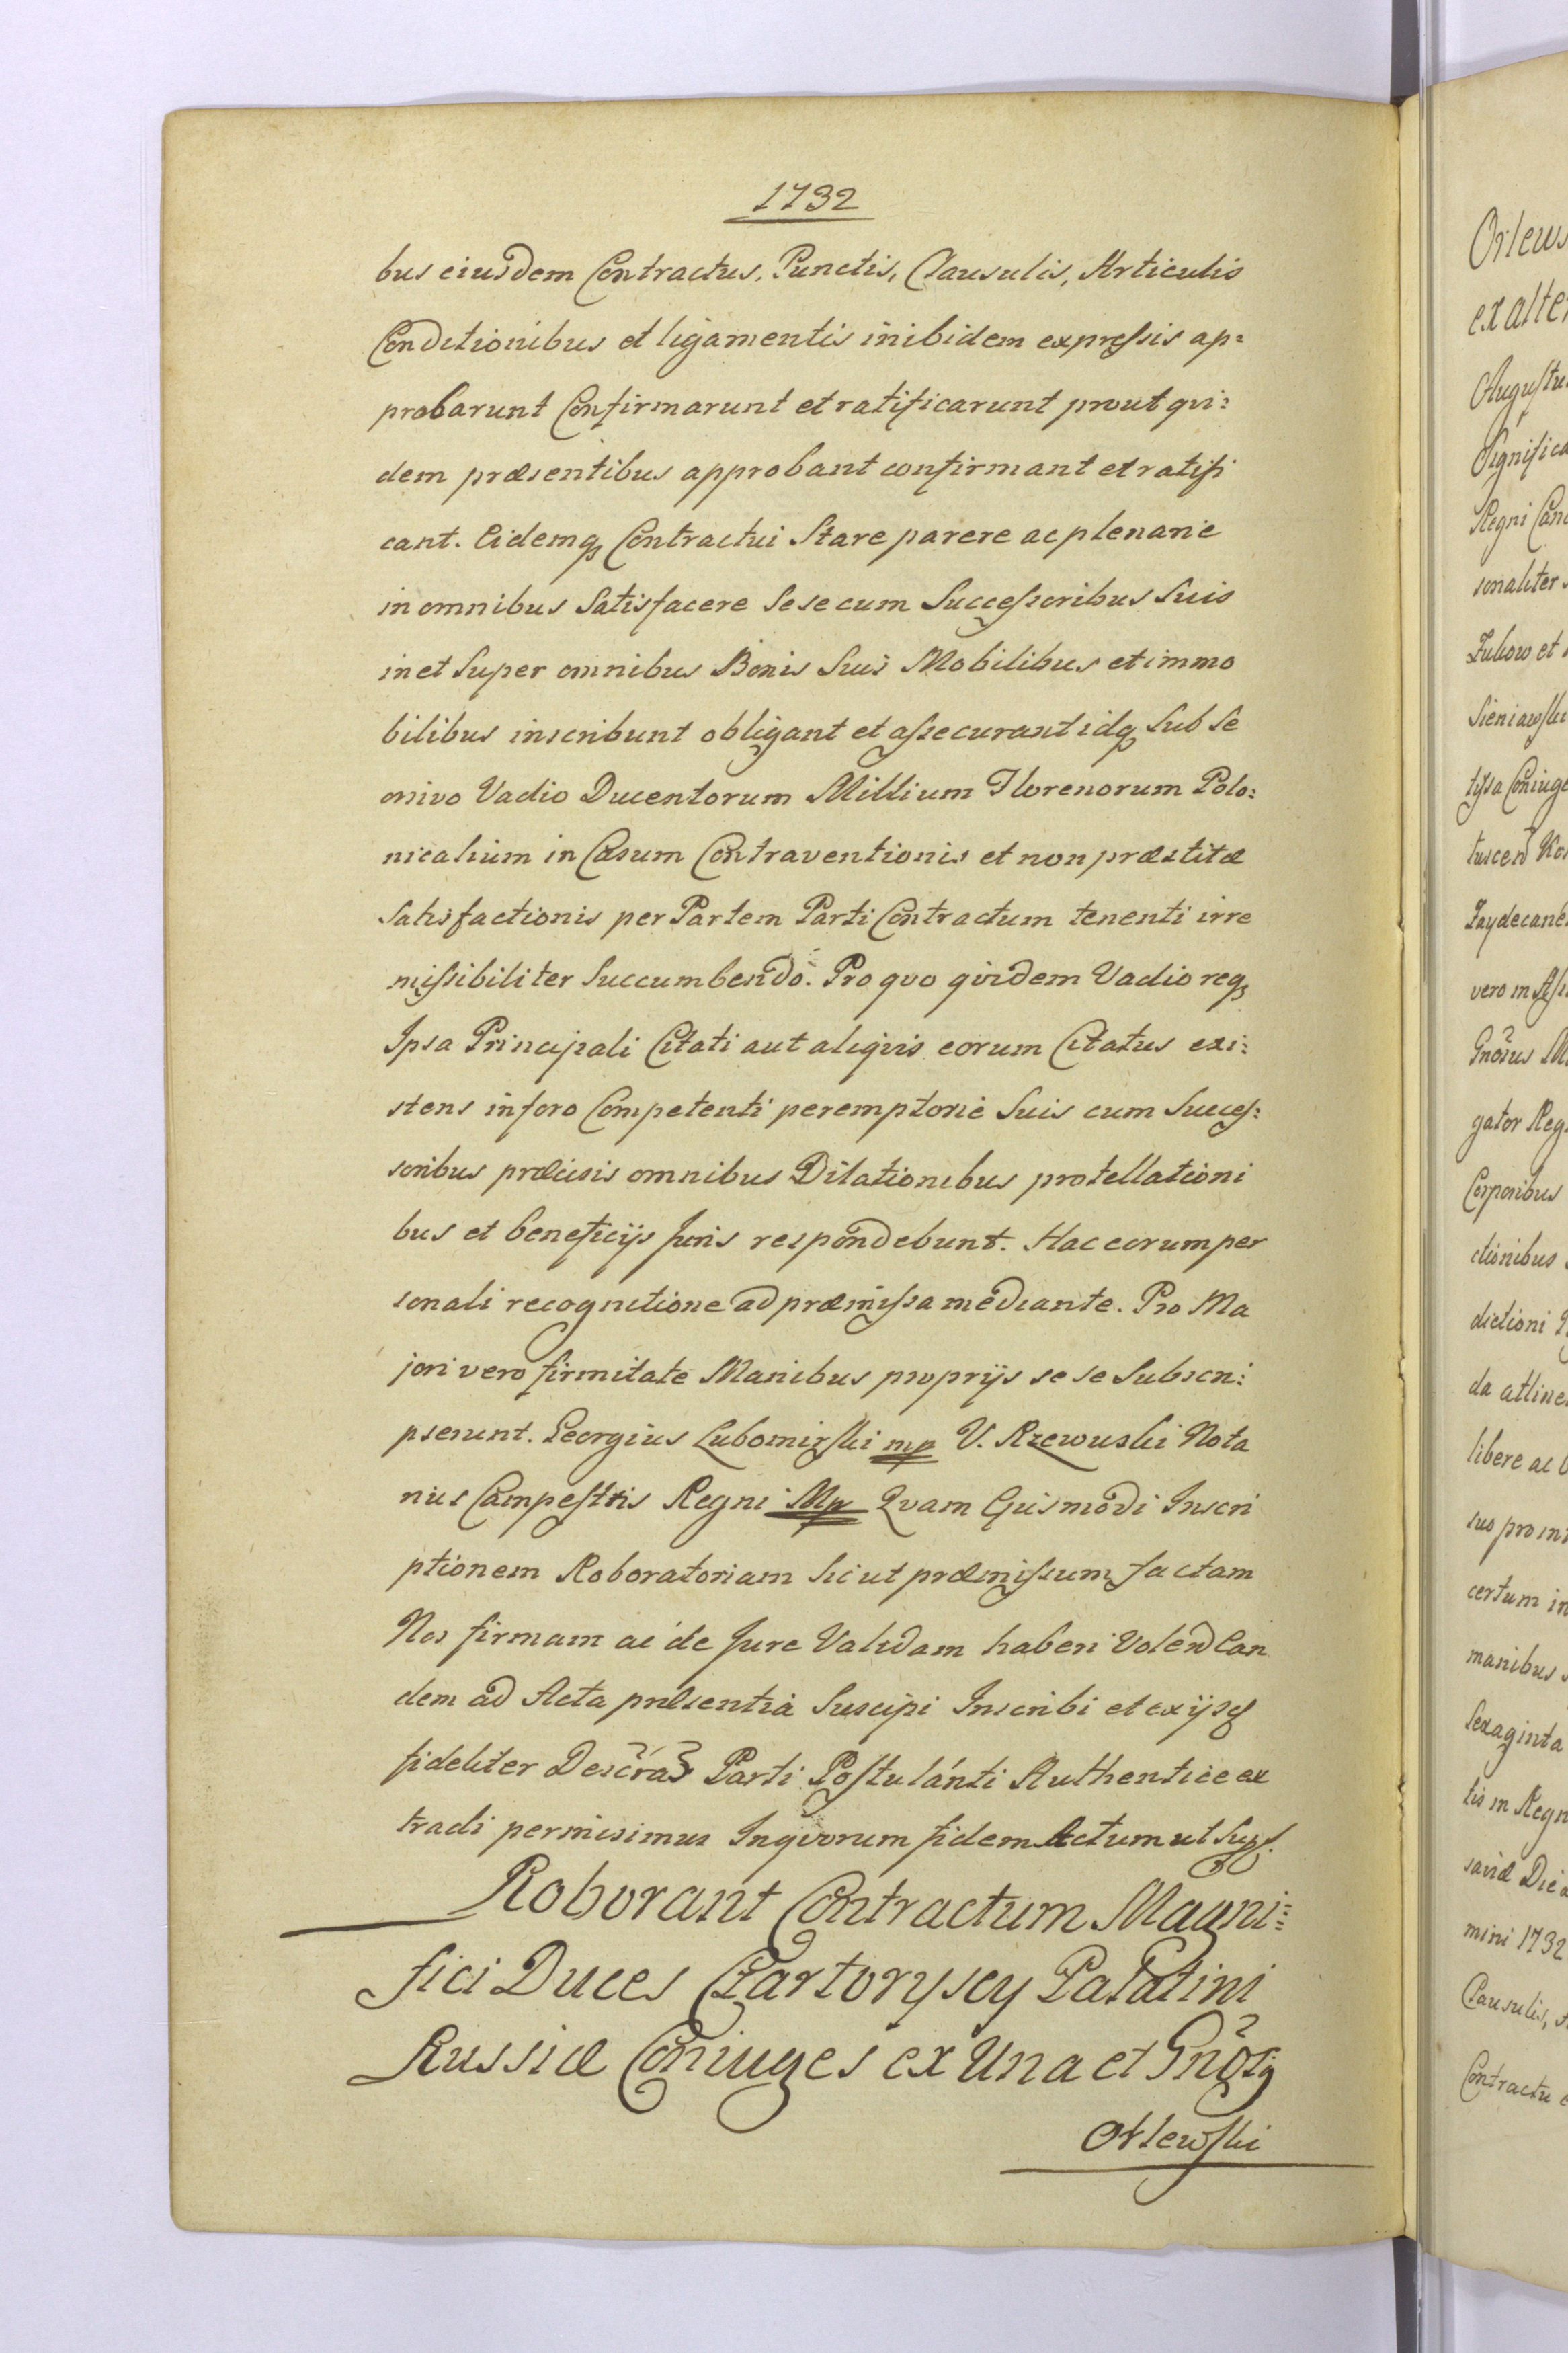 1732
bus eiusdem Contractus, Punctis, Clausulis, Articulis
Conditionibus et ligamentis inibidem expressis ap=
probarunt Confirmarunt et ratificarunt prout qvi=
dem præsentibus approbant confirmant et ratifi
cant. Eidemq Contractui Stare parere ac plenarie
in omnibus Satisfacere Se se cum Successoribus Suis
in et Super omnibus Bonis Suis Mobilibus et immo
bilibus inscribunt obligant et assecurant idq Sub Se
orsivo Vadio Ducentorum Millium Florenorum Polo=
nicalium in Casum Contraventionis et non præstitæ
Satisfactionis per Partem Parti Contractum tenenti irre
missibiliter Succumbendo. Pro qvo qvidem Vadio req
Ipsa Principali Citati aut aliqvis eorum Citatus exi=
stens in foro Competenti peremptorie Suis cum Succes=
soribus præcisis omnibus Dilationibus protellationi
bus et beneficijs Juris respondebunt. Hac eorum per
sonali recognitione ad præmissa mediante. Pro Ma
jori vero firmitate Manibus proprijs se se Subscri=
pserunt. Georgius Lubomirski mp V. Rzewuski Nota
rius Campestris Regni Mp Qvam Ejusmodi Inscri
ptionem Roboratoriam Sicut præmissum factam
Nos firmam ac de Jure Validam haberi Volen Ean
dem ad Acta præsentia Suscipi Inscribi et ex ijsq
fideliter Descras Parti Postulanti Authentice ex
tradi permisimus Inqvorum fidem Actum ut Sup.
Roborant Contractum Magni=
fici Duces Czartoryscy Palatini
Russiæ Coniuges ex Una et Gnosq
Orlewski
Orlews
ex alte
Augustu
Significa
Regni Canc
sonaliter
Zukow et
Sieniawski
tysa Coniuge
tuscen
Zaydecane
vero in Ass
Gnosus M
gator Reg
Corporibus
ctionibus
dictioni
da attine
libere ac
suo pro in
certum in
manibus
Sexaginta
tis in Regn
saviæ Die
mini 1732
Clausulis,
Contractu